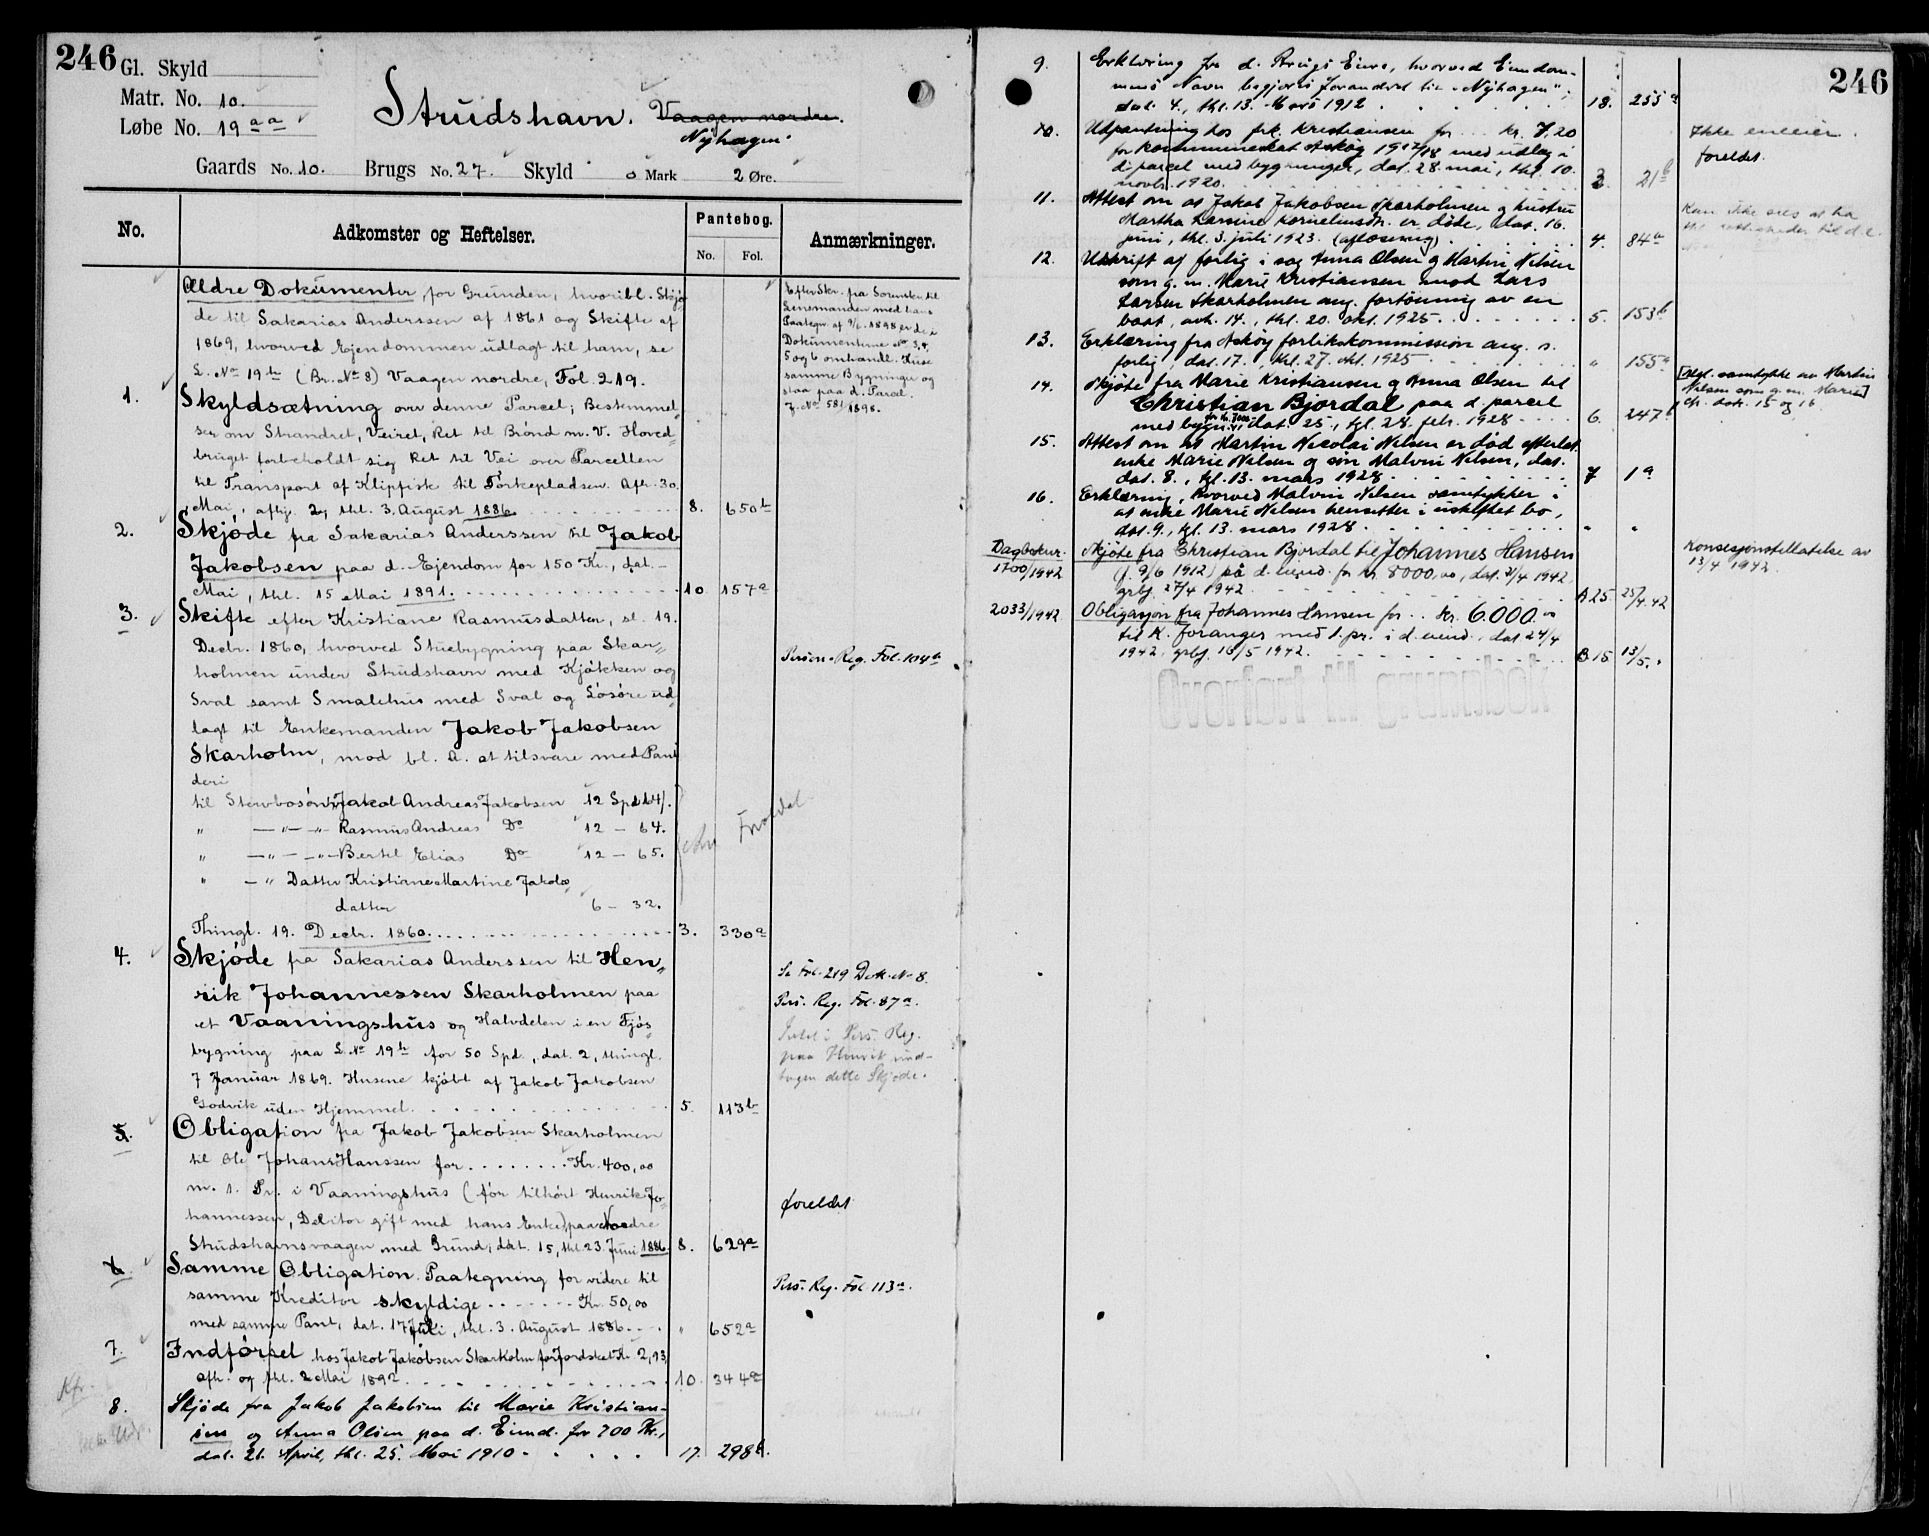 246
Gl. Skyld
Matr. No. 10.
Løbe No. 19 aa
Strudshavn. Vaagen nordre.
Nyhagen.
Gaards No. 10. Brugs No. 27. Skyld 0 Mark 2 Øre.
No.
Adkomster og Heftelser.
Pantebog.
No. Fol.
Anmærkninger.
Ældre Dokumenter for Grunden, hvoribl. Skjö-
de til Sakarias Anderssen af 1861 og Skifte af
1869, hvorved Ejendommen udlagt til ham, se
L. No 19 b (Br. No 8) Vaagen nordre, Fol. 219.
Efter Skr. fra Sorensk. til
Lensmanden med hans
Paategn. af 9/6 1898 er de i
Dokumenterne No 3, 4,
5 og 6 omhandl. Huse
samme Bygninger og
staa paa d. Parcel.
J. No 581/1898.
1. Skyldsætning over denne Parcel; Bestemmel-
ser om Strandret, Veiret, Ret til Brönd m. V. Hoved-
bruget forbeholdt sig Ret til Vei over Parcellen
til Transport af Klipfisk til Törkepladsen. Afh. 30.
Mai, afhj. 2, thl. 3. August 1886. 8. 650 b
2. Skjöde fra Sakarias Anderssen til Jakob
Jakobsen paa d. Ejendom for 150 Kr., dat. -
Mai, thl. 15 Mai 1891. 10 157 a
3. Skifte efter Kristiane Rasmusdatter, sl. 19.
Decbr. 1860, hvorved Stuebygning paa Skar-
holmen under Strudshavn med Kjökken og
Sval samt Smalehus med Sval og Lösöre ud-
lagt til Enkemanden Jakob Jakobsen
Skarholm, mod bl. A. at tilsvare med Pant
deri
Person-Reg. Fol. 104 a
til Stervbosönnen Jakob Andreas Jakobsen 12 Spd 64.
" —"— —"— Rasmus Andreas Do 12 — 64.
" —"— —"— Bertil Elias Do 12 — 65.
" —" Datter Kristiane Martine Jakobs-
datter 6 — 32.
Thingl. 19. Decbr. 1860. 3. 330 a
4. Skjöde fra Sakarias Anderssen til Hen-
rik Johannessen Skarholmen paa
et Vaaningshus og Halvdelen i en Fjös-
bygning paa L. No 19 b for 50 Spd., dat. 2, thingl.
7 Januar 1869. Husene kjöbt af Jakob Jakobsen
Godvik uden Hjemmel. 5. 113 b
Se Fol. 219 Dok. No 8.
Pers. Reg. Fol. 87 a.
Intet i Pers. Reg.
paa Henrik und-
tagen dette Skjöde.
5. Obligation fra Jakob Jakobsen Skarholmen
til Ole Johan Hanssen for Kr. 400,00
m. 1. Pr. i Vaaningshus (för tilhört Henrik Jo-
hannessen, Debitor gift med hans Enke), paa Nordre
Strudshavnsvaagen med Grund, dat. 15, thl. 23. Juni 1886. 8. 629 a
foreldet
6. Samme Obligation. Paategning for videre til
samme Kreditor skyldige Kr. 50,00
med samme Pant, dat. 17 Juli, thl. 3. August 1886. " 652 a
Pers. Reg. Fol. 113 a.
7. Indförsel hos Jakob Jakobsen Skarholm for Jordskat Kr. 2,93,
afh. og thl. 2 Mai 1892. 10. 344 a
8. Skjøde fra Jakob Jakobsen til Marie Kristian-
sen og Anna Olsen paa d. Eiend. for 700 Kr.,
dat. 21. April, thl. 25. Mai 1910 17. 298 b.
246
9. Erklæring fra d. Brugs Eiere, hvorved Eiendom-
mens Navn begjæres forandret til "Nyhagen";
dat. 4., thl. 13. Mars 1912 18. 255 a
10. Utpantning hos frk. Kristiansen for kr. 7.20
for kommuneskat Askøy 1917/18 med utlæg i
d. parcel med bygninger, dat. 28. mai, thl. 10.
novbr. 1920. 3. 21 b
Ikke eneeier.
foreldet.
11. Attest om at Jakob Jakobsen Skarholmen og hustru
Martha Larsine Korneliusdtr. er døde, dat. 16.
juni, thl. 3. juli 1923. (avløsning) 4. 84 a
Kan ikke sees at ha
12. Utskrift af forlig i sag Anna Olsen og Martin Nilsen
som g. m. Marie Kristiansen mod Lars
Larsen Skarholmen ang. fortøining av en
baat, avh. 14., thl. 20. okt. 1925. 5. 153 b
13. Erklæring fra Askøy forlikskommission ang. s.
forlig, dat. 17., thl. 27. okt. 1925 " 155 a
14. Skjøte fra Marie Kristiansen og Anna Olsen til
Christian Bjordal paa d. parcel
med bygn. for kr. dat. 25., tgl. 28. febr. 1928 6. 247 b
[Mgl. samtykke av Martin
Nilsen som g. m. Marie]
cfr. dok. 15 og 16
15. Attest om at Martin Nicolai Nilsen er død efterlat
enke Marie Nilsen og søn Malvin Nilsen, dat.
dat. 8., tgl. 13. mars 1928 7 1 a
16. Erklæring, hvorved Malvin Nilsen samtykker i
at enke Marie Nilsen hensitter i uskiftet bo,
dat. 9., tgl. 13. mars 1928 " "
Dagboknr.
1700/1942 Skjøte fra Christian Bjordal til Johannes Hansen
(f. 9/6 1912) på d. eiend. for kr. 8000,00, dat. 21/4 1942,
grbf. 27/4 1942 A 25 25/4.42
Konsesjonstillatelse av
13/4 1942.
2033/1942 Obligasjon fra Johannes Hansen for kr. 6.000,00
til K. Foranger med 1. pr. i d. eiend., dat 24/4
1942, grbf. 16/5 1942. B 15 13/5.